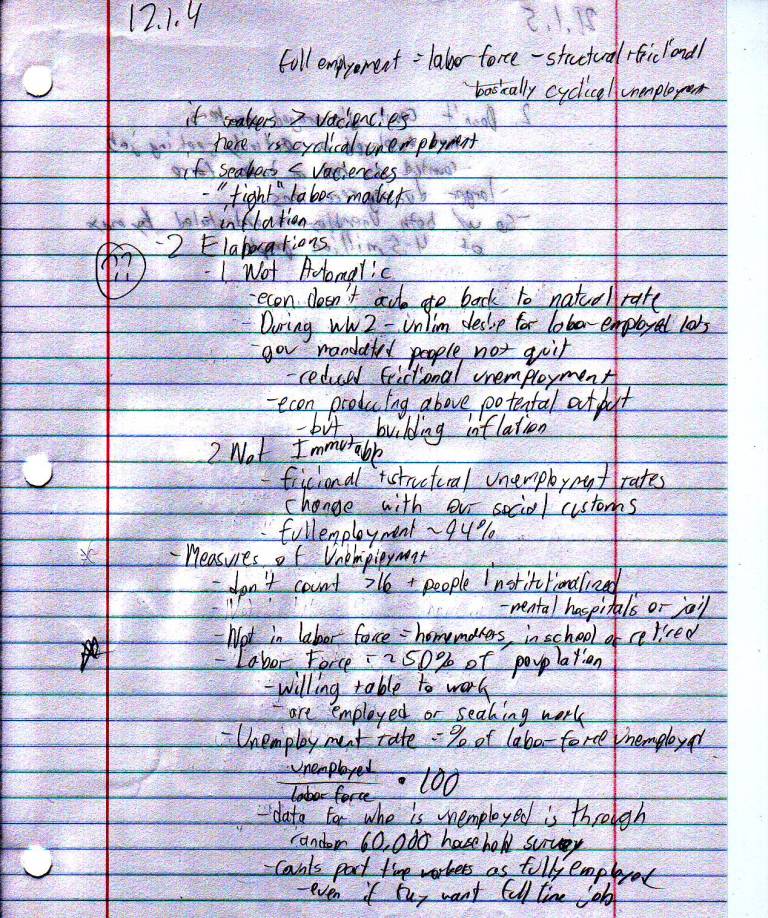 12.1.4
full empyoement = labor force - structural + frictional
basically cyclical unemployment
if seakers > vaciencies
here is cyclical unemployment
if seakers < vaciencies
- "tight" labor market
inflation
- 2 Elaborations
??
- 1. Not Automatic
- econ doesn't auto go back to natural rate
- During WW2 - unlim for labor employed lots
- gov mandated people not quit
- reduced frictional unemployment
- econ producing above potental output
- but building inflation
2 Not Immutable
- fricional + structural unemployment rates
change with our social customs
- fullemployment ~
- Measures of Unemployment
- don't count >16 + people institutionalized
- mental hospitals or jail
- Not in labor force = homemakers, in school or retired
- Labor Force = ~50% of pouplation
- willing + able to work
- are employed or seaking work
- Unemployment rate = % of labor force unemployed
unemployed
labor force • 100
- data for who is unemployed is through
random 60,000 household survey
- counts part time workers as fully employed
- even if they want full time job